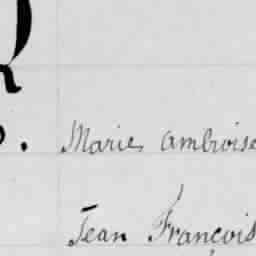 Marie, ambroise
Jean François